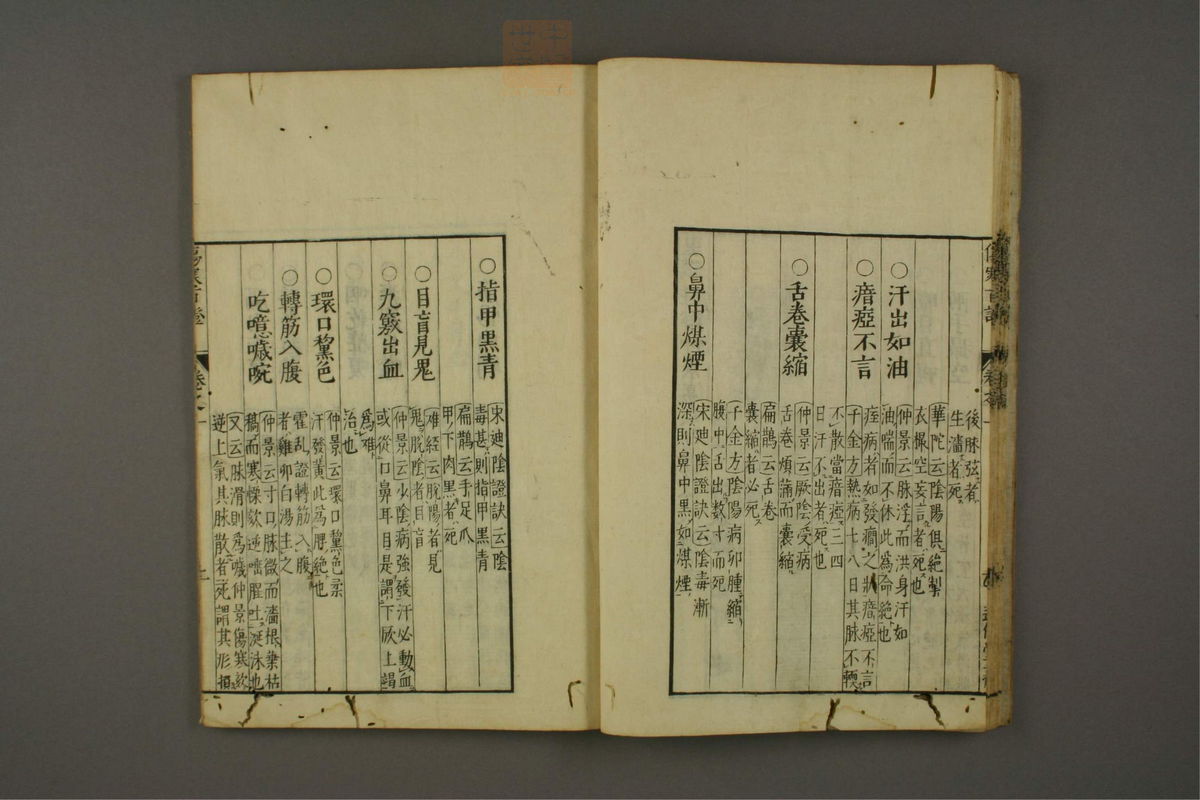 後脉弦者死
生濇者死
華陀云陰陽俱絶掣
衣掇空妄言者死也
○汗出如油
仲景云脉浮而洪身汗如
油喘而不休此爲命絶也
○瘖瘂不言
痓病者如發癇之狀瘖瘂不言
千金方熱病七八日其脉不軟
不散當瘖瘂三四
日汗不出者死也
○舌卷囊縮
仲景云厥陰受病
舌卷煩滿而囊縮
扁鵲云舌卷
囊縮者必死
千金方陰陽病卵腫縮
腹中舌出數寸而死
○鼻中煤煙
宋廸陰證訣云陰毒漸
深則鼻中黒如煤煙
○指甲黒青
宋廸陰證訣云陰
毒甚則指甲黒青
扁鵲云手足爪
甲下肉黒者死
○目盲見鬼
難經云脫陽者見
鬼脫陰者目盲
○九竅出血
仲景云少陰病強發汗必動血
或從口鼻耳目是謂下厥上竭
爲難
治也
○環口黧色
仲景云環口黧色柔
汗發黃此爲脾絶也
○轉筋入腹
霍亂證轉筋入腹
者雞卵白湯主之
吃噫噦啘
仲景云寸口脉微而濇根葉枯
稿而寒慄欬逆唾腥吐涎沫也
又云脉滑則爲噦仲景傷寒欬
逆上氣其脉散者死謂其形損
卷之一